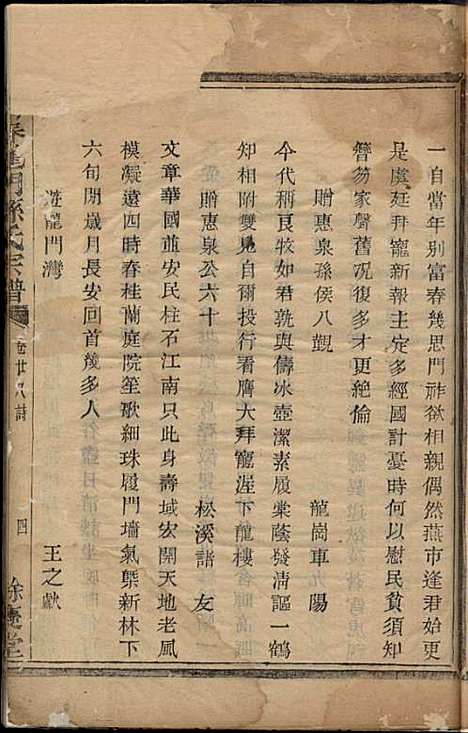 一自當年別富春幾思門祚欲相親偶然燕市逢君始更
是虞廷拜寵新報主定多經國計憂時何以慰民貧須知
簪笏家聲舊況復多才更絕倫
贈惠泉孫侯八觀 龍崗車 陽
今代稱良牧如君孰與儔冰壺潔素履棠蔭發清謳一鶴
知相附雙鳧自爾投行看膺大拜寵渥下龍樓
贈惠泉公六十 松溪諸 友
文章華國並安民柱石江南只此身壽域宏開天地老風
模凝遠四時春桂蘭庭院笙歌細珠履門墻氣槩新林下
六旬閒歲月長安回首幾多人
遊龍門灣 王之獻
門孫氏宗譜 卷廿八詩 四 餘慶堂